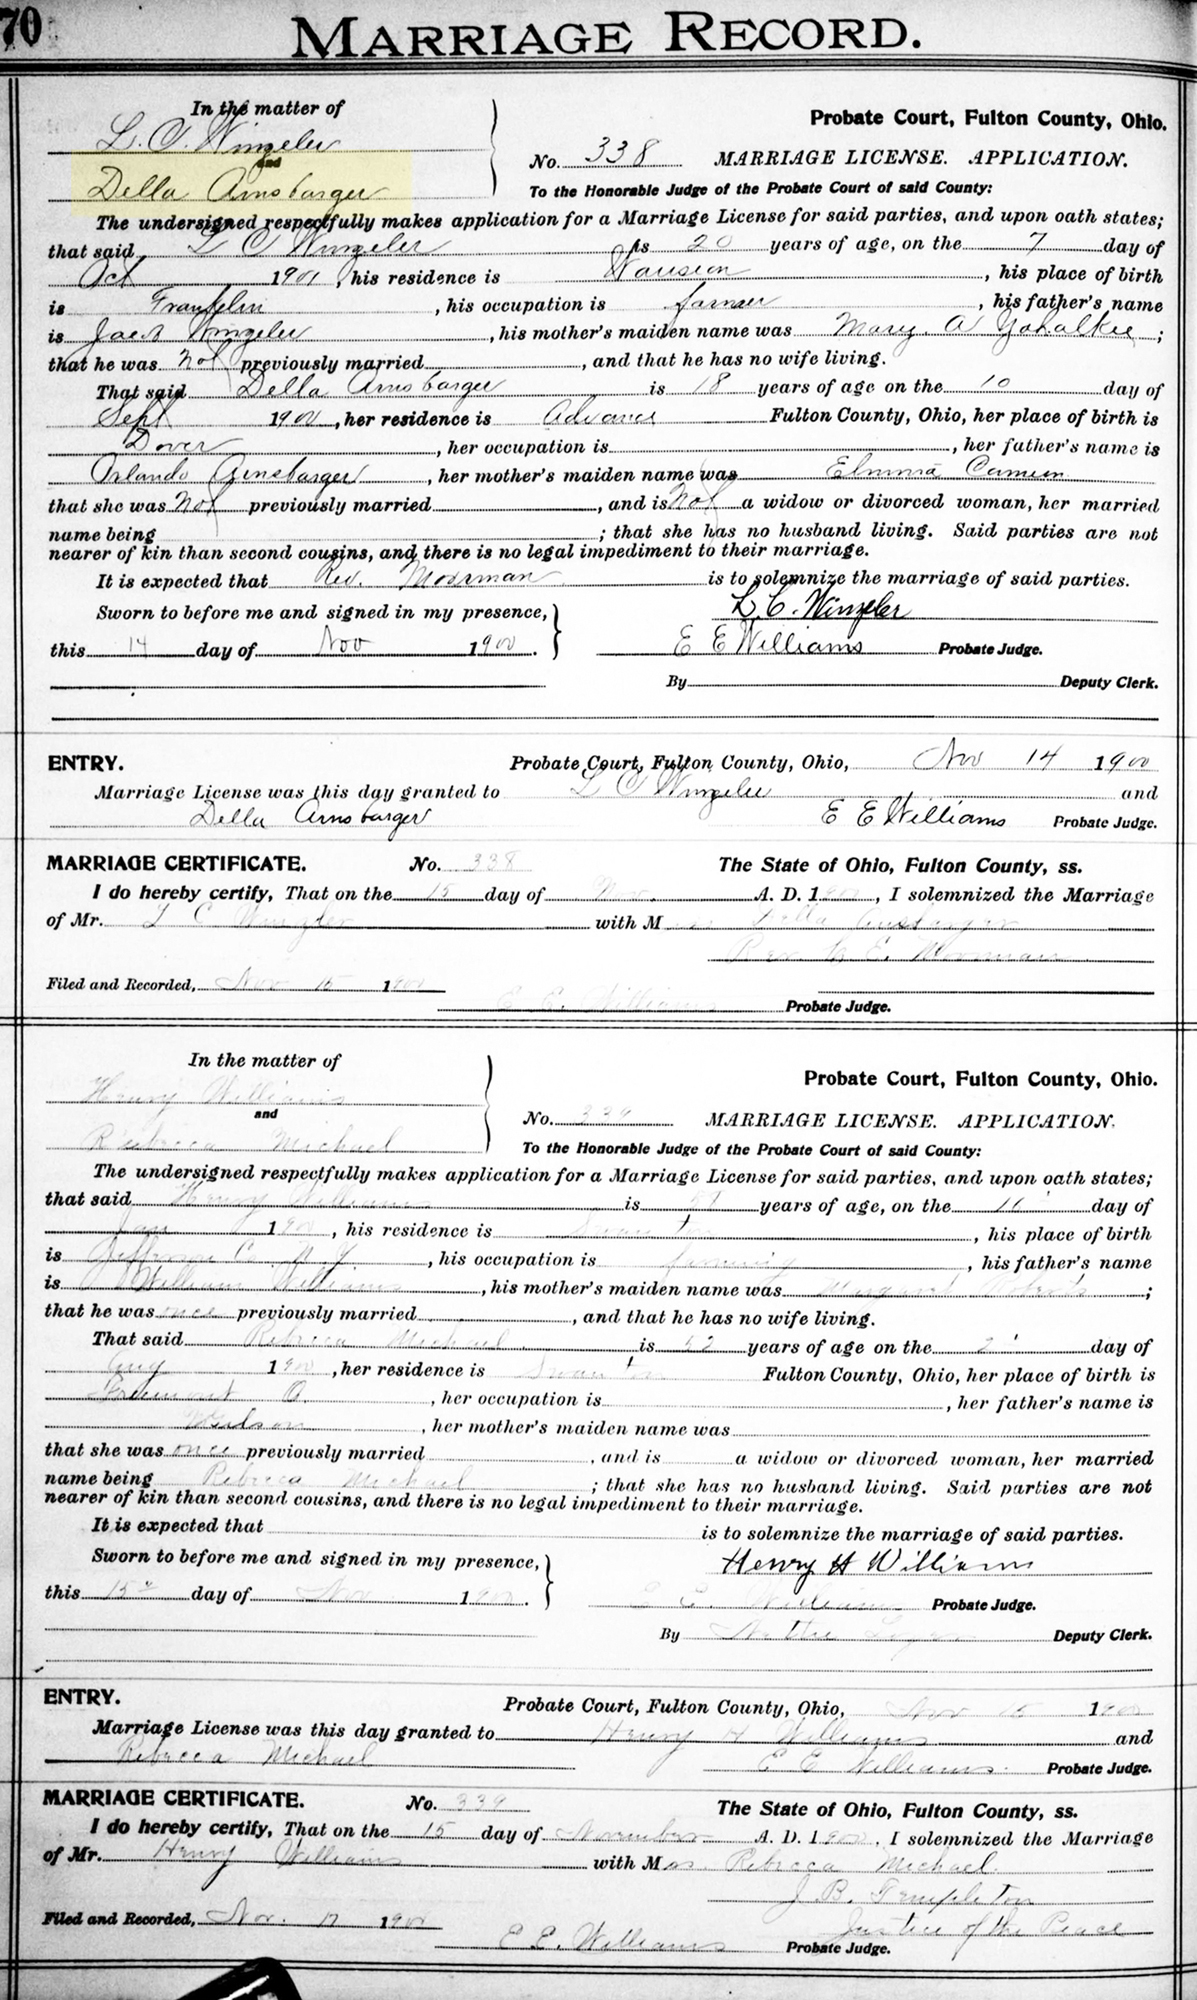 70
MARRIAGE RECORD.
In the matter of
L. C. Wingeler
and
Della Arnsbarger
Probate Court, Fulton County, Ohio.
No. 338 MARRIAGE LICENSE. APPLICATION.
To the Honorable Judge of the Probate Court of said County:
The undersigned respectfully makes application for a Marriage License for said parties, and upon oath states;
that said L C Wingeler is 20 years of age, on the 7 day of
Oct 1900, his residence is Wauseon, his place of birth
is Franklin, his occupation is farmer, his father's name
is Jacob Wingeler, his mother's maiden name was Mary A ;
that he was Not previously married, and that he has no wife living.
That said Della Arnsbarger is 18 years of age on the 10 day of
Sept 1900, her residence is Advance Fulton County, Ohio, her place of birth is
Dover, her occupation is , her father's name is
Orlando Arnsbarger, her mother's maiden name was Elmina
that she was Not previously married , and is Not a widow or divorced woman, her married
name being ; that she has no husband living. Said parties are not
nearer of kin than second cousins, and there is no legal impediment to their marriage.
It is expected that Rev. Moorman is to solemnize the marriage of said parties.
Sworn to before me and signed in my presence, L. C. Wingeler
this 14 day of Nov 1900. E E Williams Probate Judge.
By Deputy Clerk.
ENTRY. Probate Court, Fulton County, Ohio, Nov 14 1900
Marriage License was this day granted to L C Wingeler and
Della Arnsbarger E E Williams Probate Judge.
MARRIAGE CERTIFICATE. No. 338 The State of Ohio, Fulton County, ss.
I do hereby certify, That on the 15 day of Nov. A. D. 1900, I solemnized the Marriage
of Mr. L C Wingeler with Miss Della Arnsbarger
Rev. E. Moorman
Filed and Recorded, Nov 15 1900
E E. Williams Probate Judge.
In the matter of
Henry Williams
and
Rebecca Michael
Probate Court, Fulton County, Ohio.
No. 339 MARRIAGE LICENSE. APPLICATION.
To the Honorable Judge of the Probate Court of said County:
The undersigned respectfully makes application for a Marriage License for said parties, and upon oath states;
that said Henry Williams is 59 years of age, on the 16 day of
Jan 1900, his residence is Swanton, his place of birth
is Jefferson Co. N. Y., his occupation is farming, his father's name
is William Williams, his mother's maiden name was Margaret Roberts ;
that he was once previously married, and that he has no wife living.
That said Rebecca Michael is 52 years of age on the 2 day of
Aug 1900, her residence is Swanton Fulton County, Ohio, her place of birth is
Fremont O., her occupation is , her father's name is
Wilson, her mother's maiden name was
that she was once previously married , and is a widow or divorced woman, her married
name being Rebecca Michael ; that she has no husband living. Said parties are not
nearer of kin than second cousins, and there is no legal impediment to their marriage.
It is expected that is to solemnize the marriage of said parties.
Sworn to before me and signed in my presence, Henry H Williams
this 15 day of Nov 1900. E E. Williams Probate Judge.
By Deputy Clerk.
ENTRY. Probate Court, Fulton County, Ohio, Nov 15 1900
Marriage License was this day granted to Henry H Williams and
Rebecca Michael E E Williams Probate Judge.
MARRIAGE CERTIFICATE. No. 339 The State of Ohio, Fulton County, ss.
I do hereby certify, That on the 15 day of November A. D. 1900, I solemnized the Marriage
of Mr. Henry Williams with Mrs. Rebecca Michael.
J. B. Templeton
Filed and Recorded, Nov. 17 1900 Justice of the Peace
E. E. Williams Probate Judge.